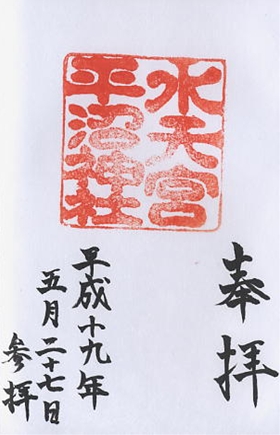 奉拝
水天宮
平沼神社
平成十九年
五月二十七日
参拝